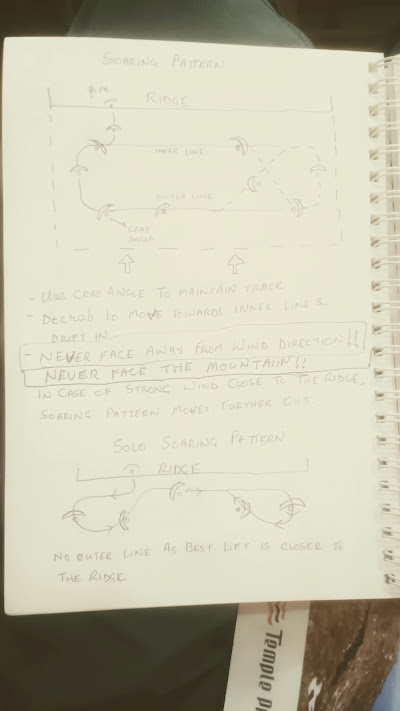 SOARING PATTERN
RIDGE
INNER LINE
OUTER LINE
CRAB
ANGLE
- USE CRAB ANGLE TO MAINTAIN TRACK
- DECRAB TO MOVE TOWARDS INNER LINE &
DRIFT IN
- NEVER FACE AWAY FROM WIND DIRECTION!!
NEVER FACE THE MOUNTAIN!!
IN CASE OF STRONG WIND CLOSE TO THE RIDGE,
SOARING PATTERN MOVES FURTHER OUT
SOLO SOARING PATTERN
RIDGE
NO OUTER LINE AS BEST LIFT IS CLOSER TO
THE RIDGE
Temple